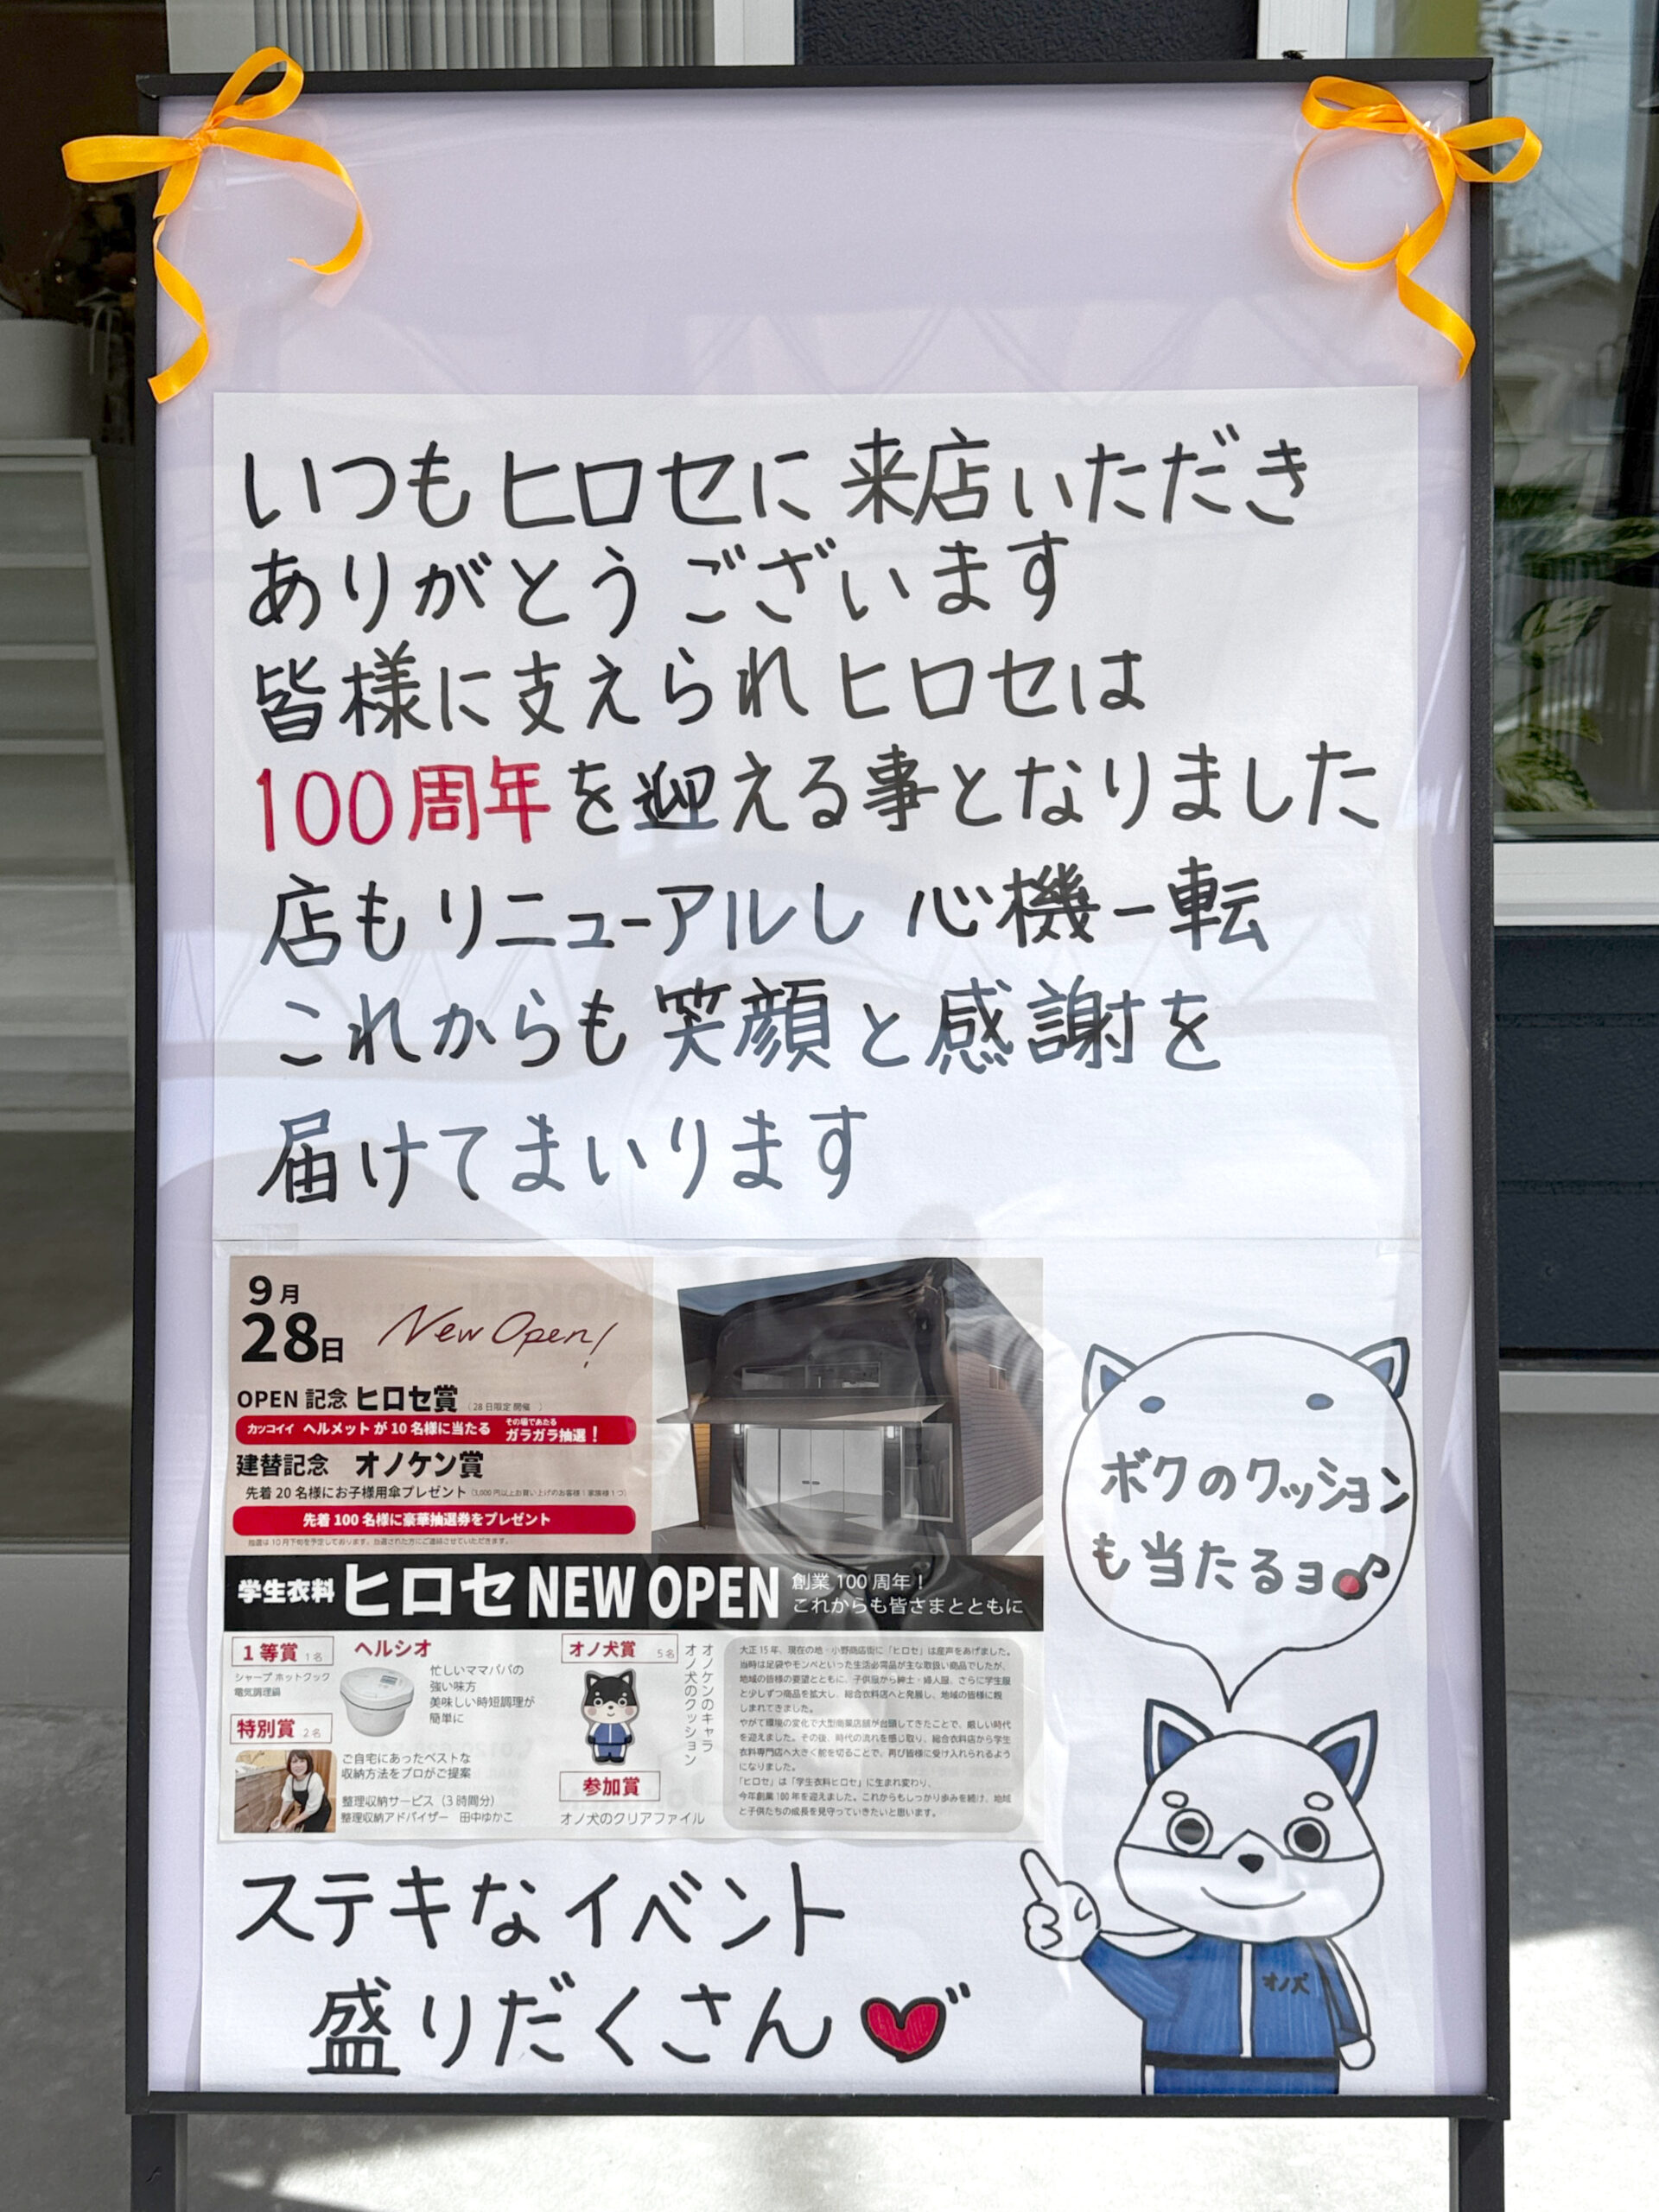 いつもヒロセに来店いただき
ありがとうございます
皆様に支えられヒロセは
100周年を迎える事となりました
店もリニューアルし 心機一転
これからも笑顔と感謝を
届けてまいります
9月
28日
New Open!
OPEN 記念 ヒロセ賞 (28日限定開催)
カッコイイ ヘルメットが10名様に当たる その場であたる ガラガラ抽選!
建替記念 オノケン賞
先着20名様にお子様用傘プレゼント (3,000円以上お買い上げのお客様1家族様1つ)
先着100名様に豪華抽選券をプレゼント
抽選は10月下旬を予定しております。当選された方にご連絡させていただきます。
学生衣料 ヒロセ NEW OPEN
創業100周年!
これからも皆さまとともに
1等賞 1名
シャープ ホットクック
電気調理鍋
ヘルシオ
忙しいママパパの
強い味方
美味しい時短調理が
簡単に
特別賞 2名
ご自宅にあったベストな
収納方法をプロがご提案
整理収納サービス(3時間分)
整理収納アドバイザー 田中ゆかこ
オノ犬賞 5名
オノケンのキャラ
オノ犬のクッション
参加賞
オノ犬のクリアファイル
大正15年、現在の地・小野商店街に「ヒロセ」は産声をあげました。
当時は足袋やモンペといった生活必需品が主な取扱い商品でしたが、
地域の皆様の要望とともに、子供服から紳士・婦人服、さらに学生服
と少しずつ商品を拡大し、総合衣料店へと発展し、地域の皆様に親
しまれてきました。
やがて環境の変化で大型商業店舗が台頭してきたことで、厳しい時代
を迎えました。その後、時代の流れを感じ取り、総合衣料店から学生
衣料専門店へ大きく舵を切ることで、再び皆様に受け入れられるよう
になりました。
「ヒロセ」は「学生衣料ヒロセ」に生まれ変わり、
今年創業100年を迎えました。これからもしっかり歩みを続け、地域
と子供たちの成長を見守っていきたいと思います。
ボクのクッション
も当たるヨ♪
オノ犬
ステキなイベント
盛りだくさん